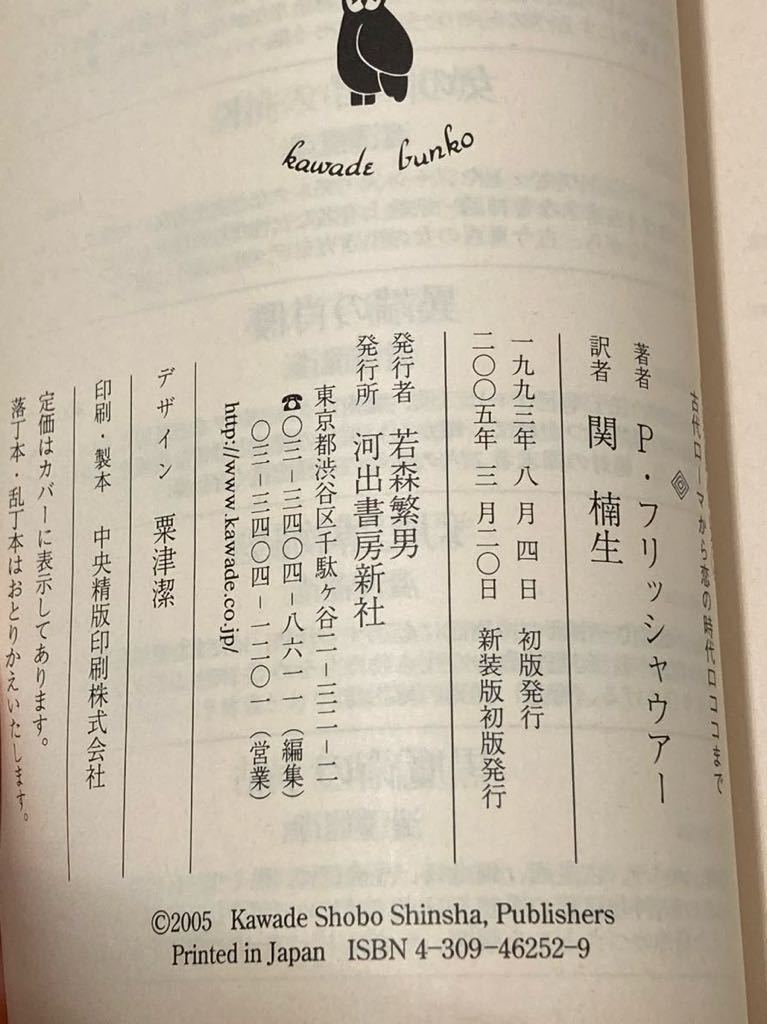 kawade bunko
古代ローマから恋の時代ロココまで
著者 P・フリッシャウアー
訳者 関 楠生
一九九三年 八 月 四 日 初版発行
二〇〇五年 三 月二〇日 新装版初版発行
発行者 若森繁男
発行所 河出書房新社
東京都渋谷区千駄ヶ谷二−三二−二
☎〇三−三四〇四−八六一一(編集)
〇三−三四〇四−一二〇一(営業)
http://www.kawade.co.jp/
デザイン 粟津潔
印刷・製本 中央精版印刷株式会社
定価はカバーに表示してあります。
落丁本・乱丁本はおとりかえいたします。
©2005 Kawade Shobo Shinsha, Publishers
Printed in Japan ISBN 4-309-46252-9